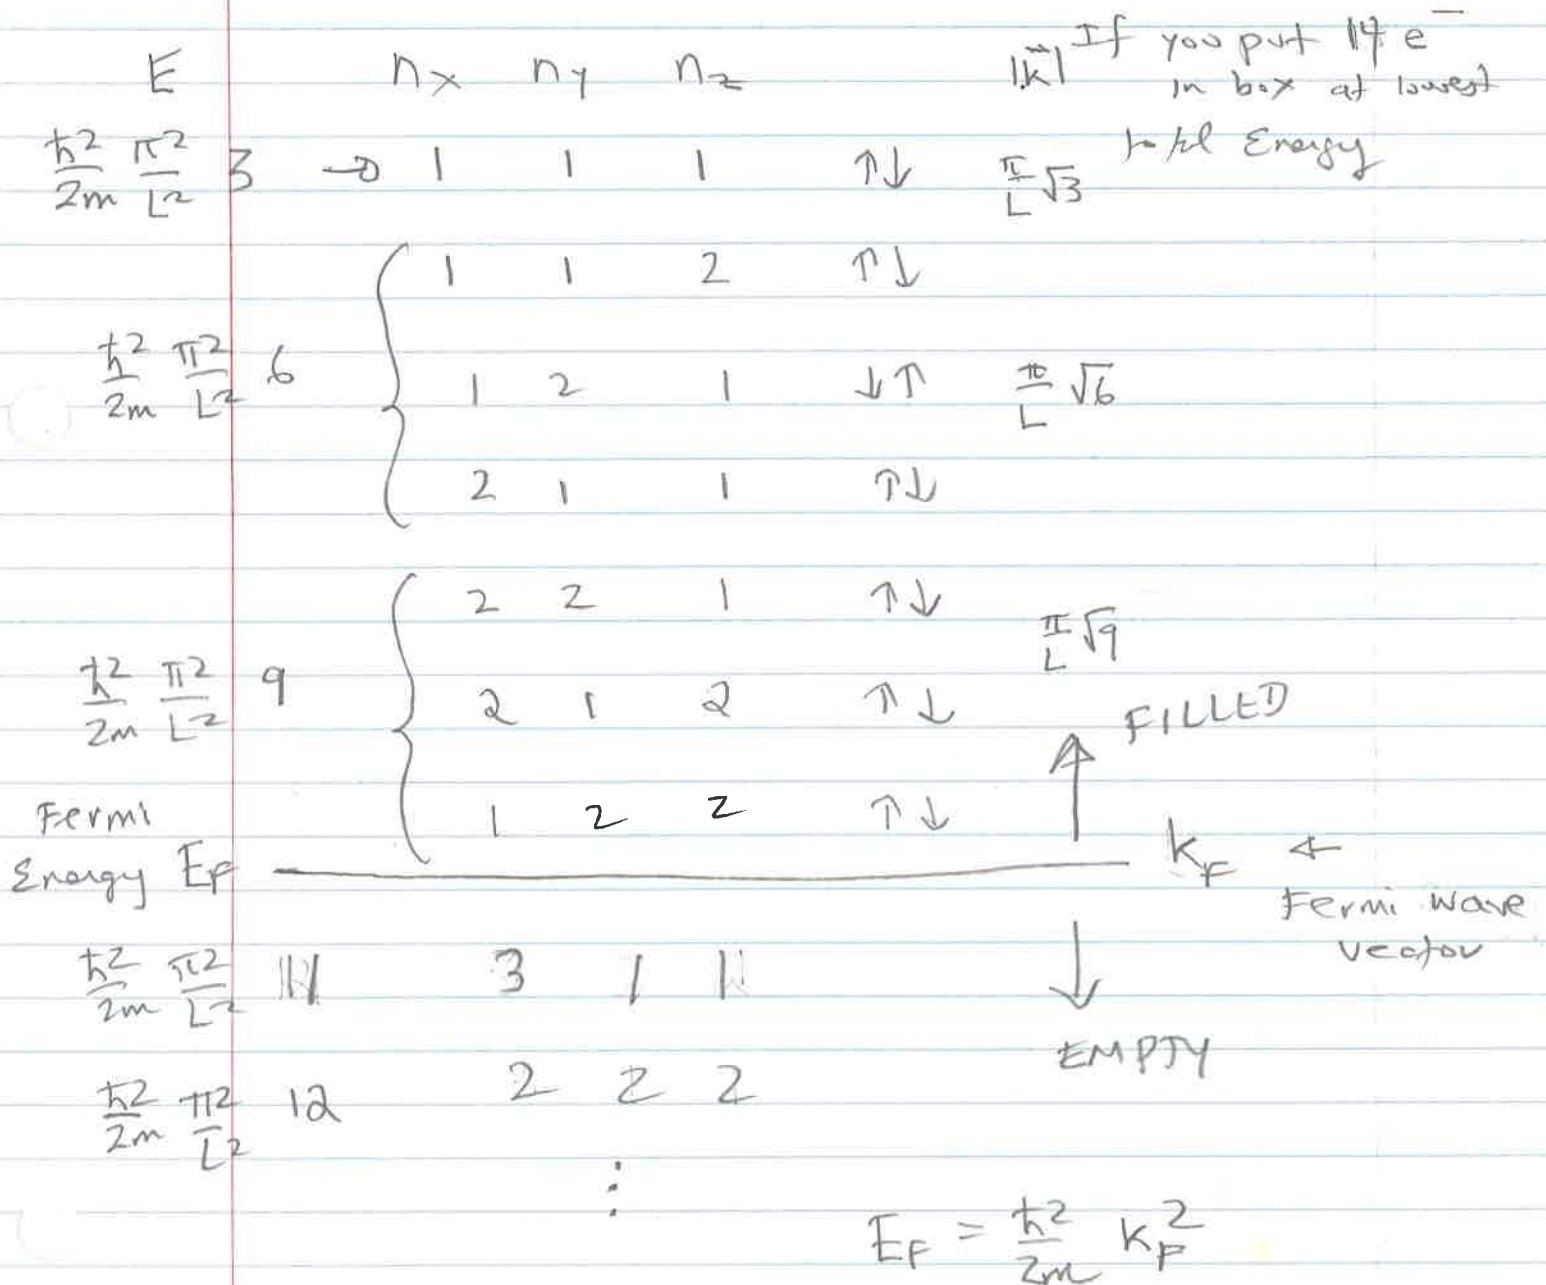 E nx ny nz |k⃗| If you put 14 e⁻
in box at lowest
total Energy
ħ²/2m π²/L² 3 → 1 1 1 ↑↓ π/L √3
1 1 2 ↑↓
ħ²/2m π²/L² 6 1 2 1 ↓↑ π/L √6
2 1 1 ↑↓
2 2 1 ↑↓ π/L √9
ħ²/2m π²/L² 9 2 1 2 ↑↓ FILLED
1 2 2 ↑↓
Fermi
Energy EF kF ←
Fermi wave
vector
ħ²/2m π²/L² 11 3 1 1
EMPTY
ħ²/2m π²/L² 12 2 2 2
⋮
EF = ħ²/2m kF²